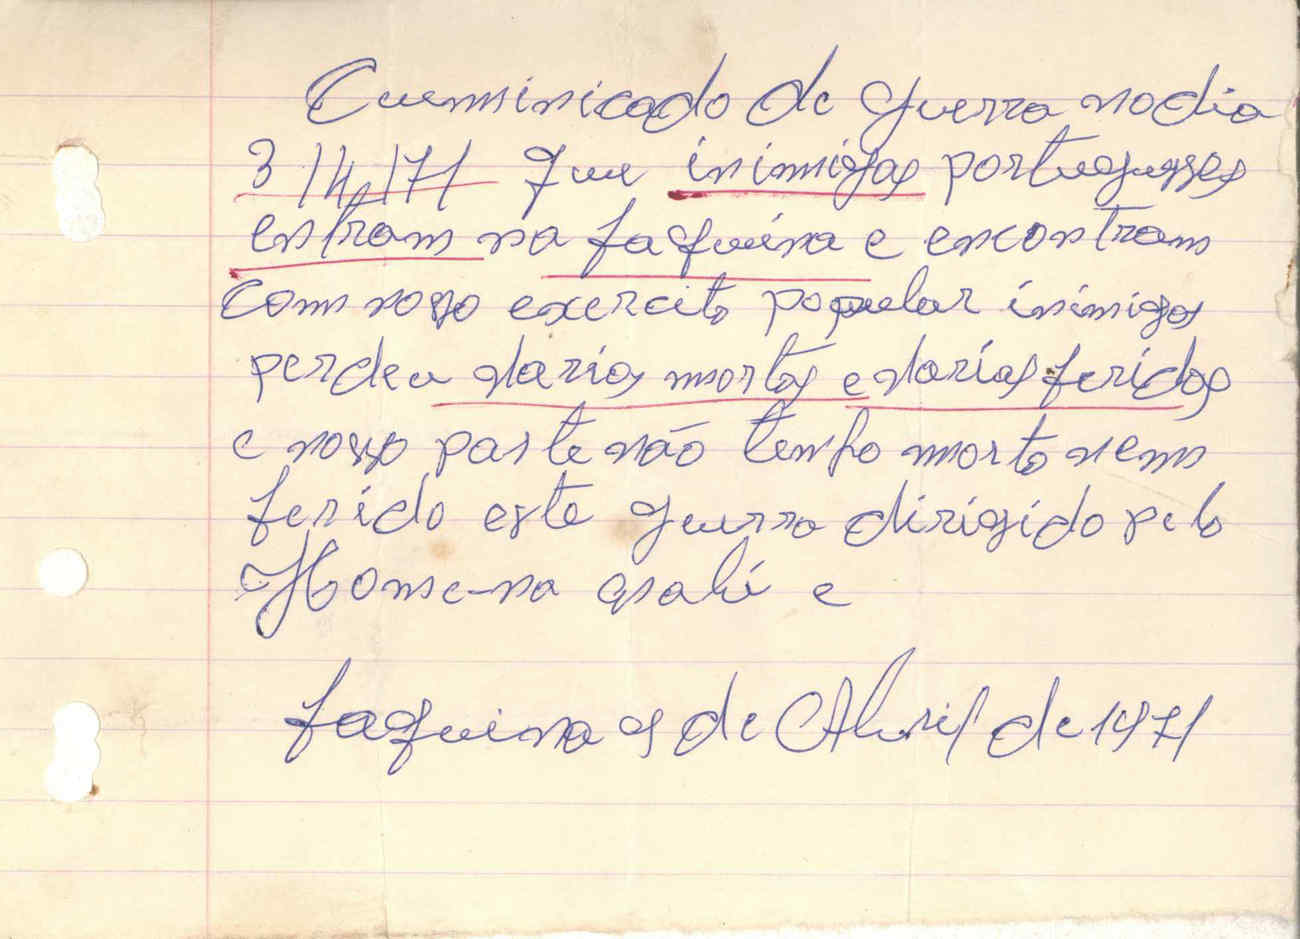 Cuminicado de guerra no dia
3/4/71 que inimigos portugueses
entram na faquina e encontram
com nosso exercito popular inimigos
perdeu varios mortos e varios feridos
e nosso parte não tenho morto nem
ferido este guerra dirigido pelo
e
faquina 9 de Abril de 1971